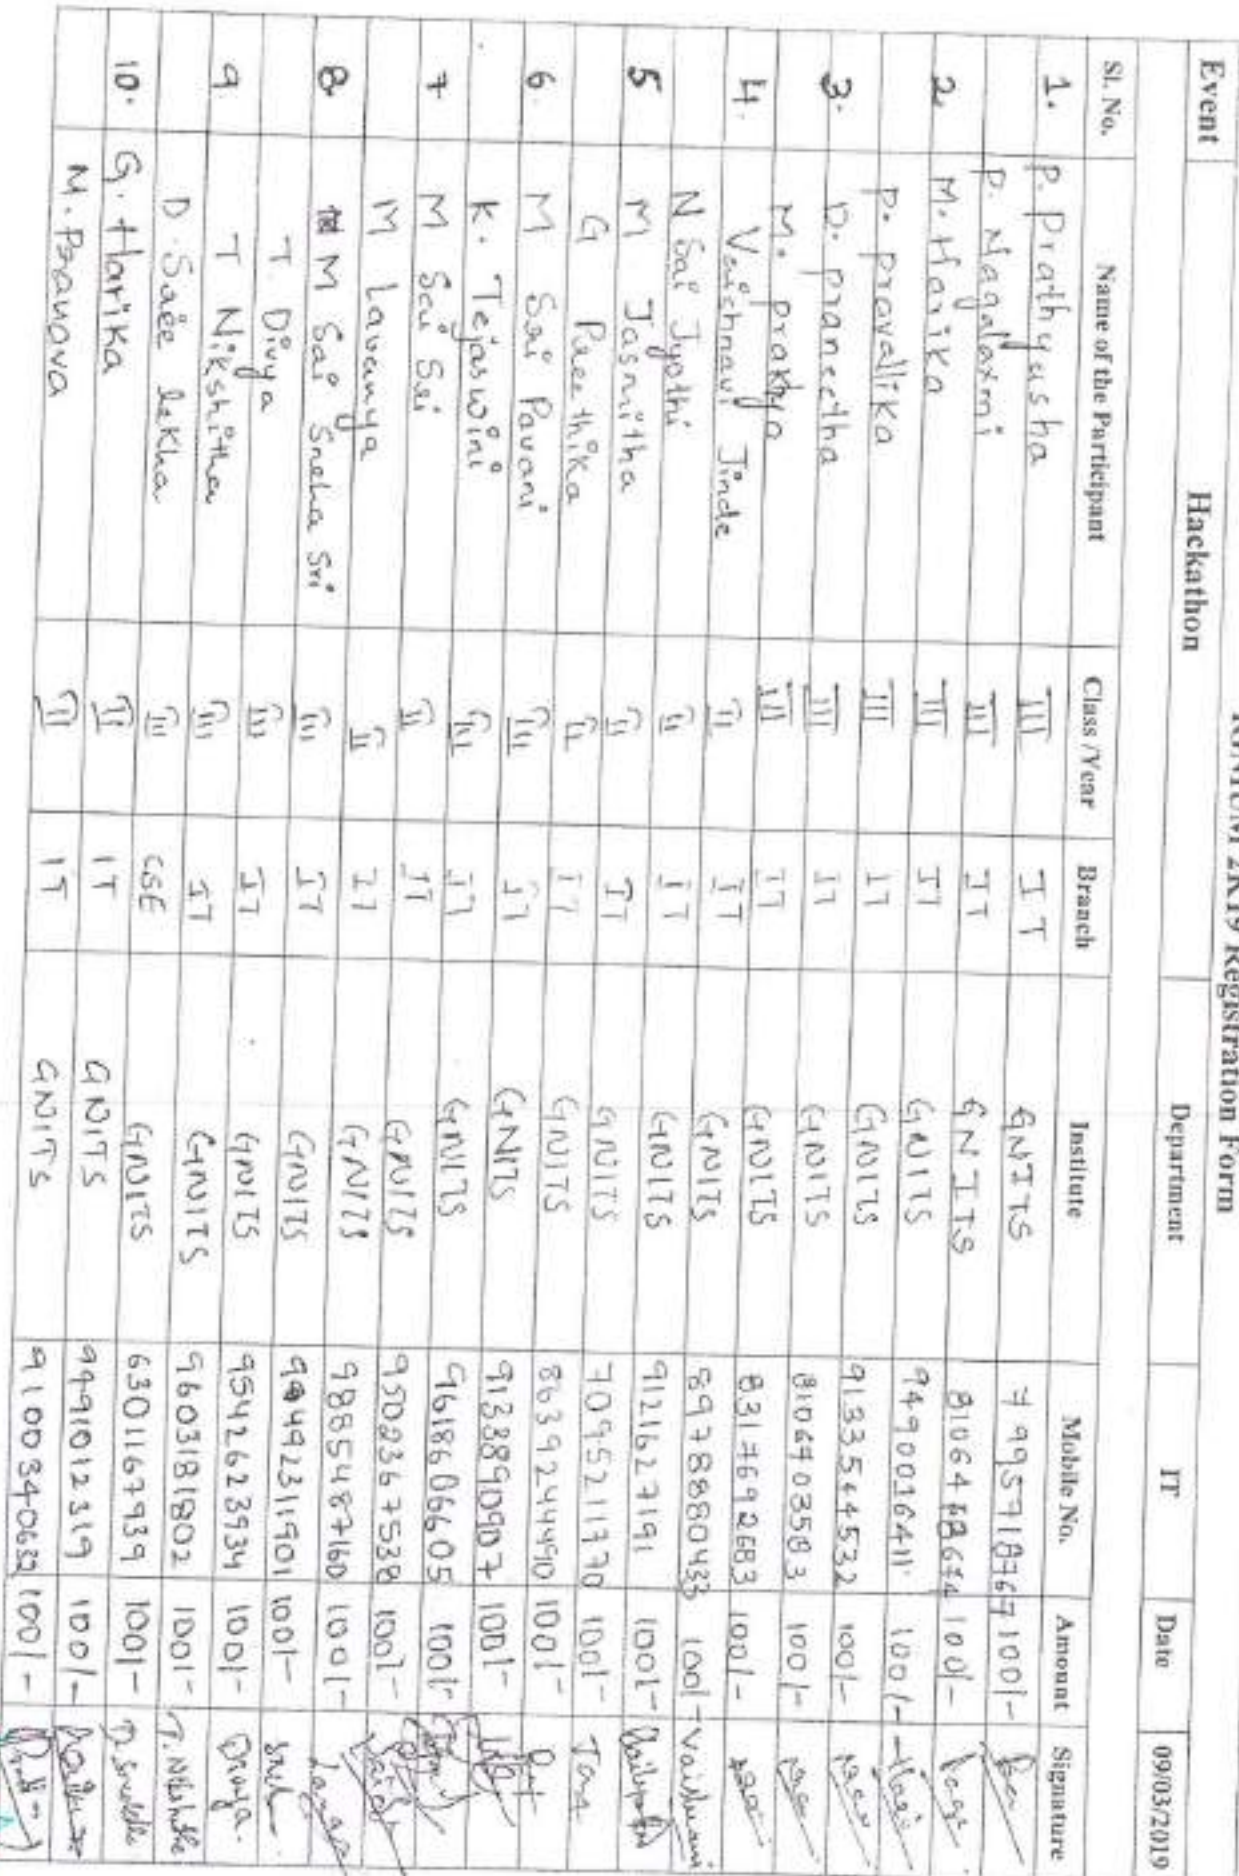 2K19 Registration Form
Event Hackathon Department IT Date 09/03/2019
Sl. No. Name of the Participant Class /Year Branch Institute Mobile No. Amount Signature
1. P. Prathyusha III IT GNITS 7995718767 100/-
P. Nagalaxmi III IT GNITS 100/-
2 M. Harika III IT GNITS 9490016411 100/-
P. Pravallika III IT GNITS 9133544532 100/-
3. D. Praneetha III IT GNITS 8106403583 100/-
M. Prakhya III IT GNITS 8317692683 100/-
4. Vaichnavi Jinde II IT GNITS 8978880433 100/- Vaishnavi
N Sai Jyothi II IT GNITS 9121627191 100/-
5 M Jasmitha II IT GNITS 7095211770 100/-
G Preethika II IT GNITS 8639244490 100/-
6. M Sai Pavani III IT GNITS 9133890907 100/-
K. Tejaswini III IT GNITS 9618606605 100/-
7 M Sai Sri II IT GNITS 9502367538 100/-
M Lavanya II IT GNITS 9885487160 100/-
8. M Sai Sneha Sri III IT GNITS 9949231190 100/-
T. Divya III IT GNITS 9542623934 100/- Divya.
9 T Nikshitha III IT GNITS 9603181802 100/-
D. Saee lekha III CSE GNITS 6301167939 100/-
10. G. Harika II IT GNITS 9491012319 100/-
M. Pranova III IT GNITS 9100340632 100/-